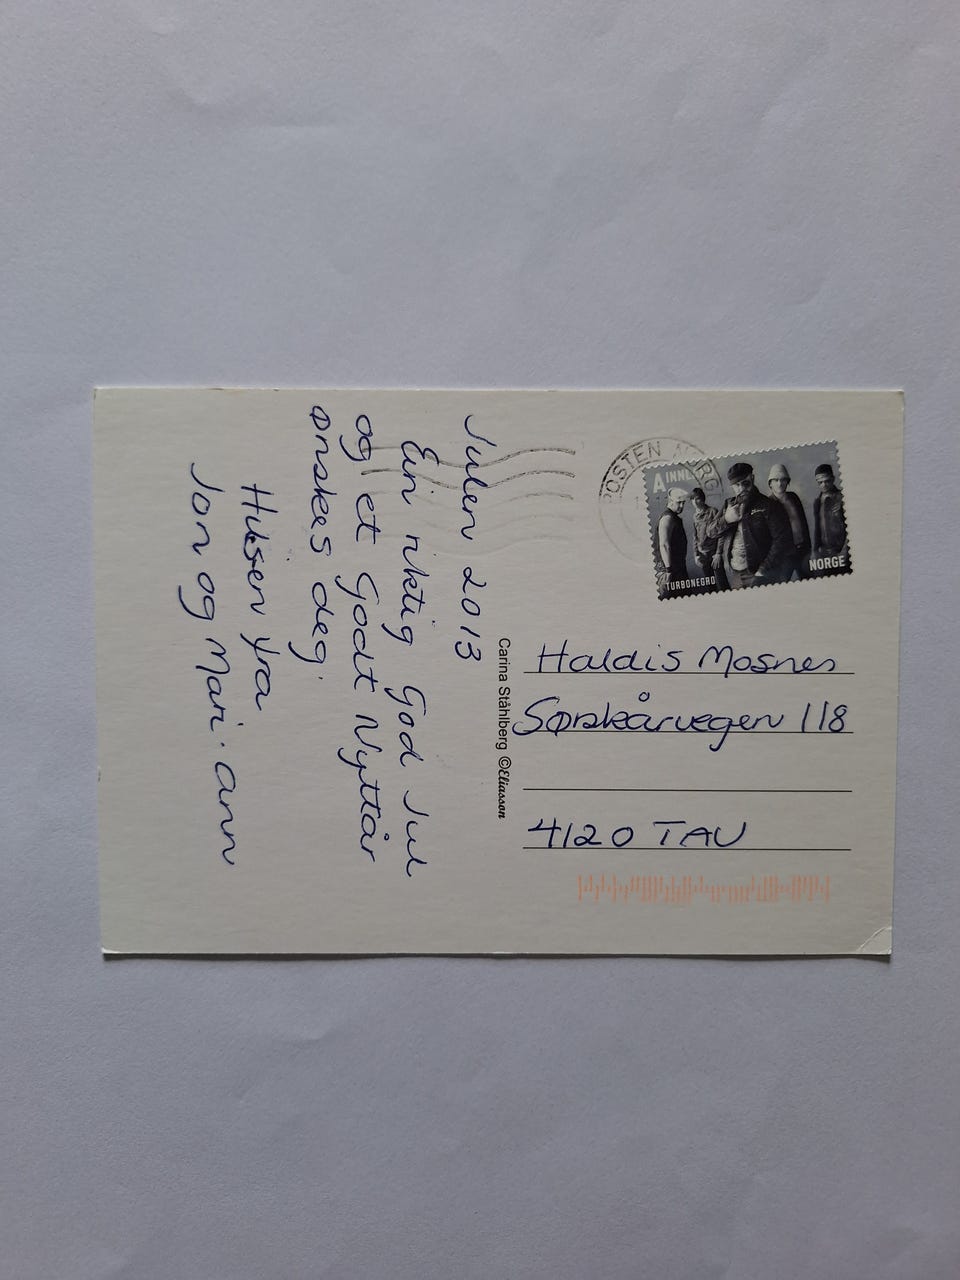 Julen 2013
Ein riktig God Jul
og et Godt Nyttår
ønskes deg.
Hilsen fra
Jon og Mari-ann
Carina Ståhlberg ©Eliasson
POSTEN NORGE
A INNL
TURBONEGRO
NORGE
Haldis Mosnes
Sørskårvegen 118
4120 TAU